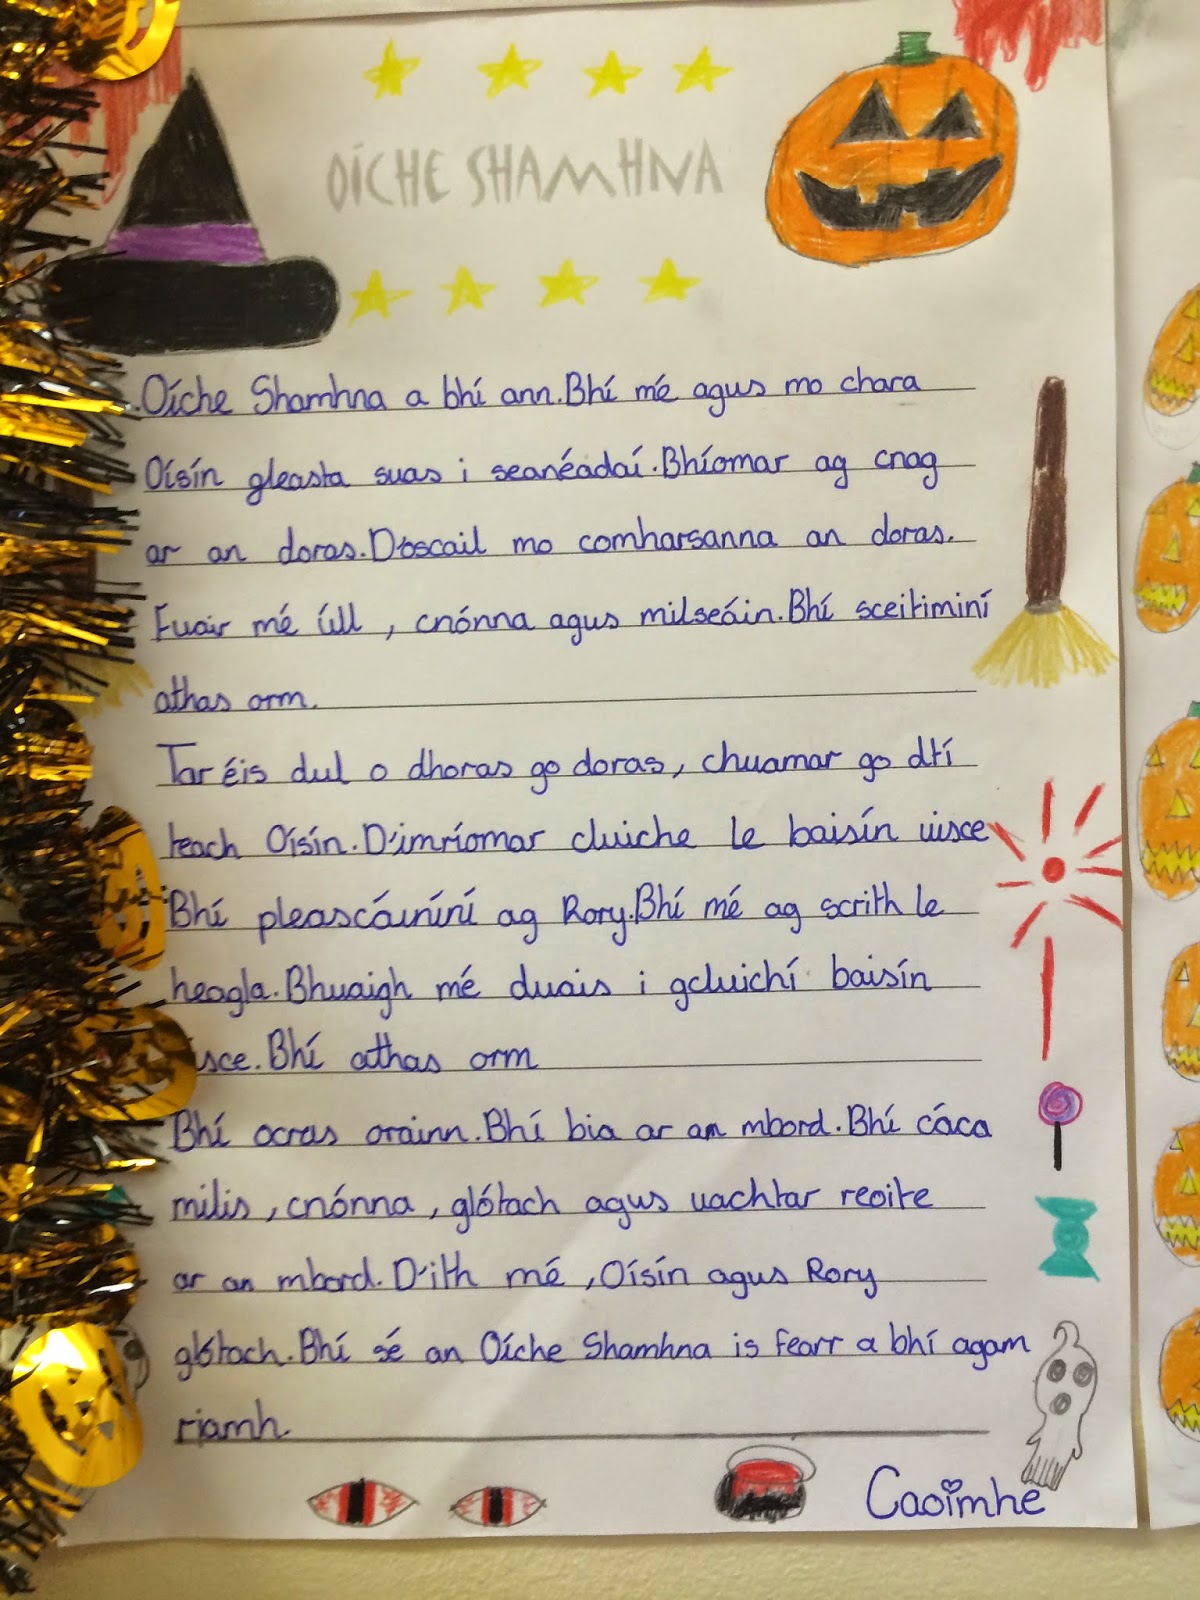 OÍCHE SHAMHNA
Oíche Shamhna a bhí ann. Bhí mé agus mo chara
Oísín gleasta suas i seanéadaí. Bhíomar ag cnag
ar an doras. D'oscail mo comharsanna an doras.
Fuair mé úll, cnónna agus milseáin. Bhí sceitiminí
athas orm.
Tar éis dul o dhoras go doras, chuamar go dtí
teach Oísín. D'imríomar cluiche le baisín uisce
Bhí pleascáiníní ag Rory. Bhí mé ag scrith le
heagla. Bhuaigh mé duais i gcluichí baisín
isce. Bhí athas orm
Bhí ocras orainn. Bhí bia ar an mbord. Bhí cáca
milis, cnónna, glótach agus uachtar reoite
ar an mbord. D'ith mé, Oísín agus Rory
glótach. Bhí sé an Oíche Shamhna is fearr a bhí agam
riamh.
Caoimhe